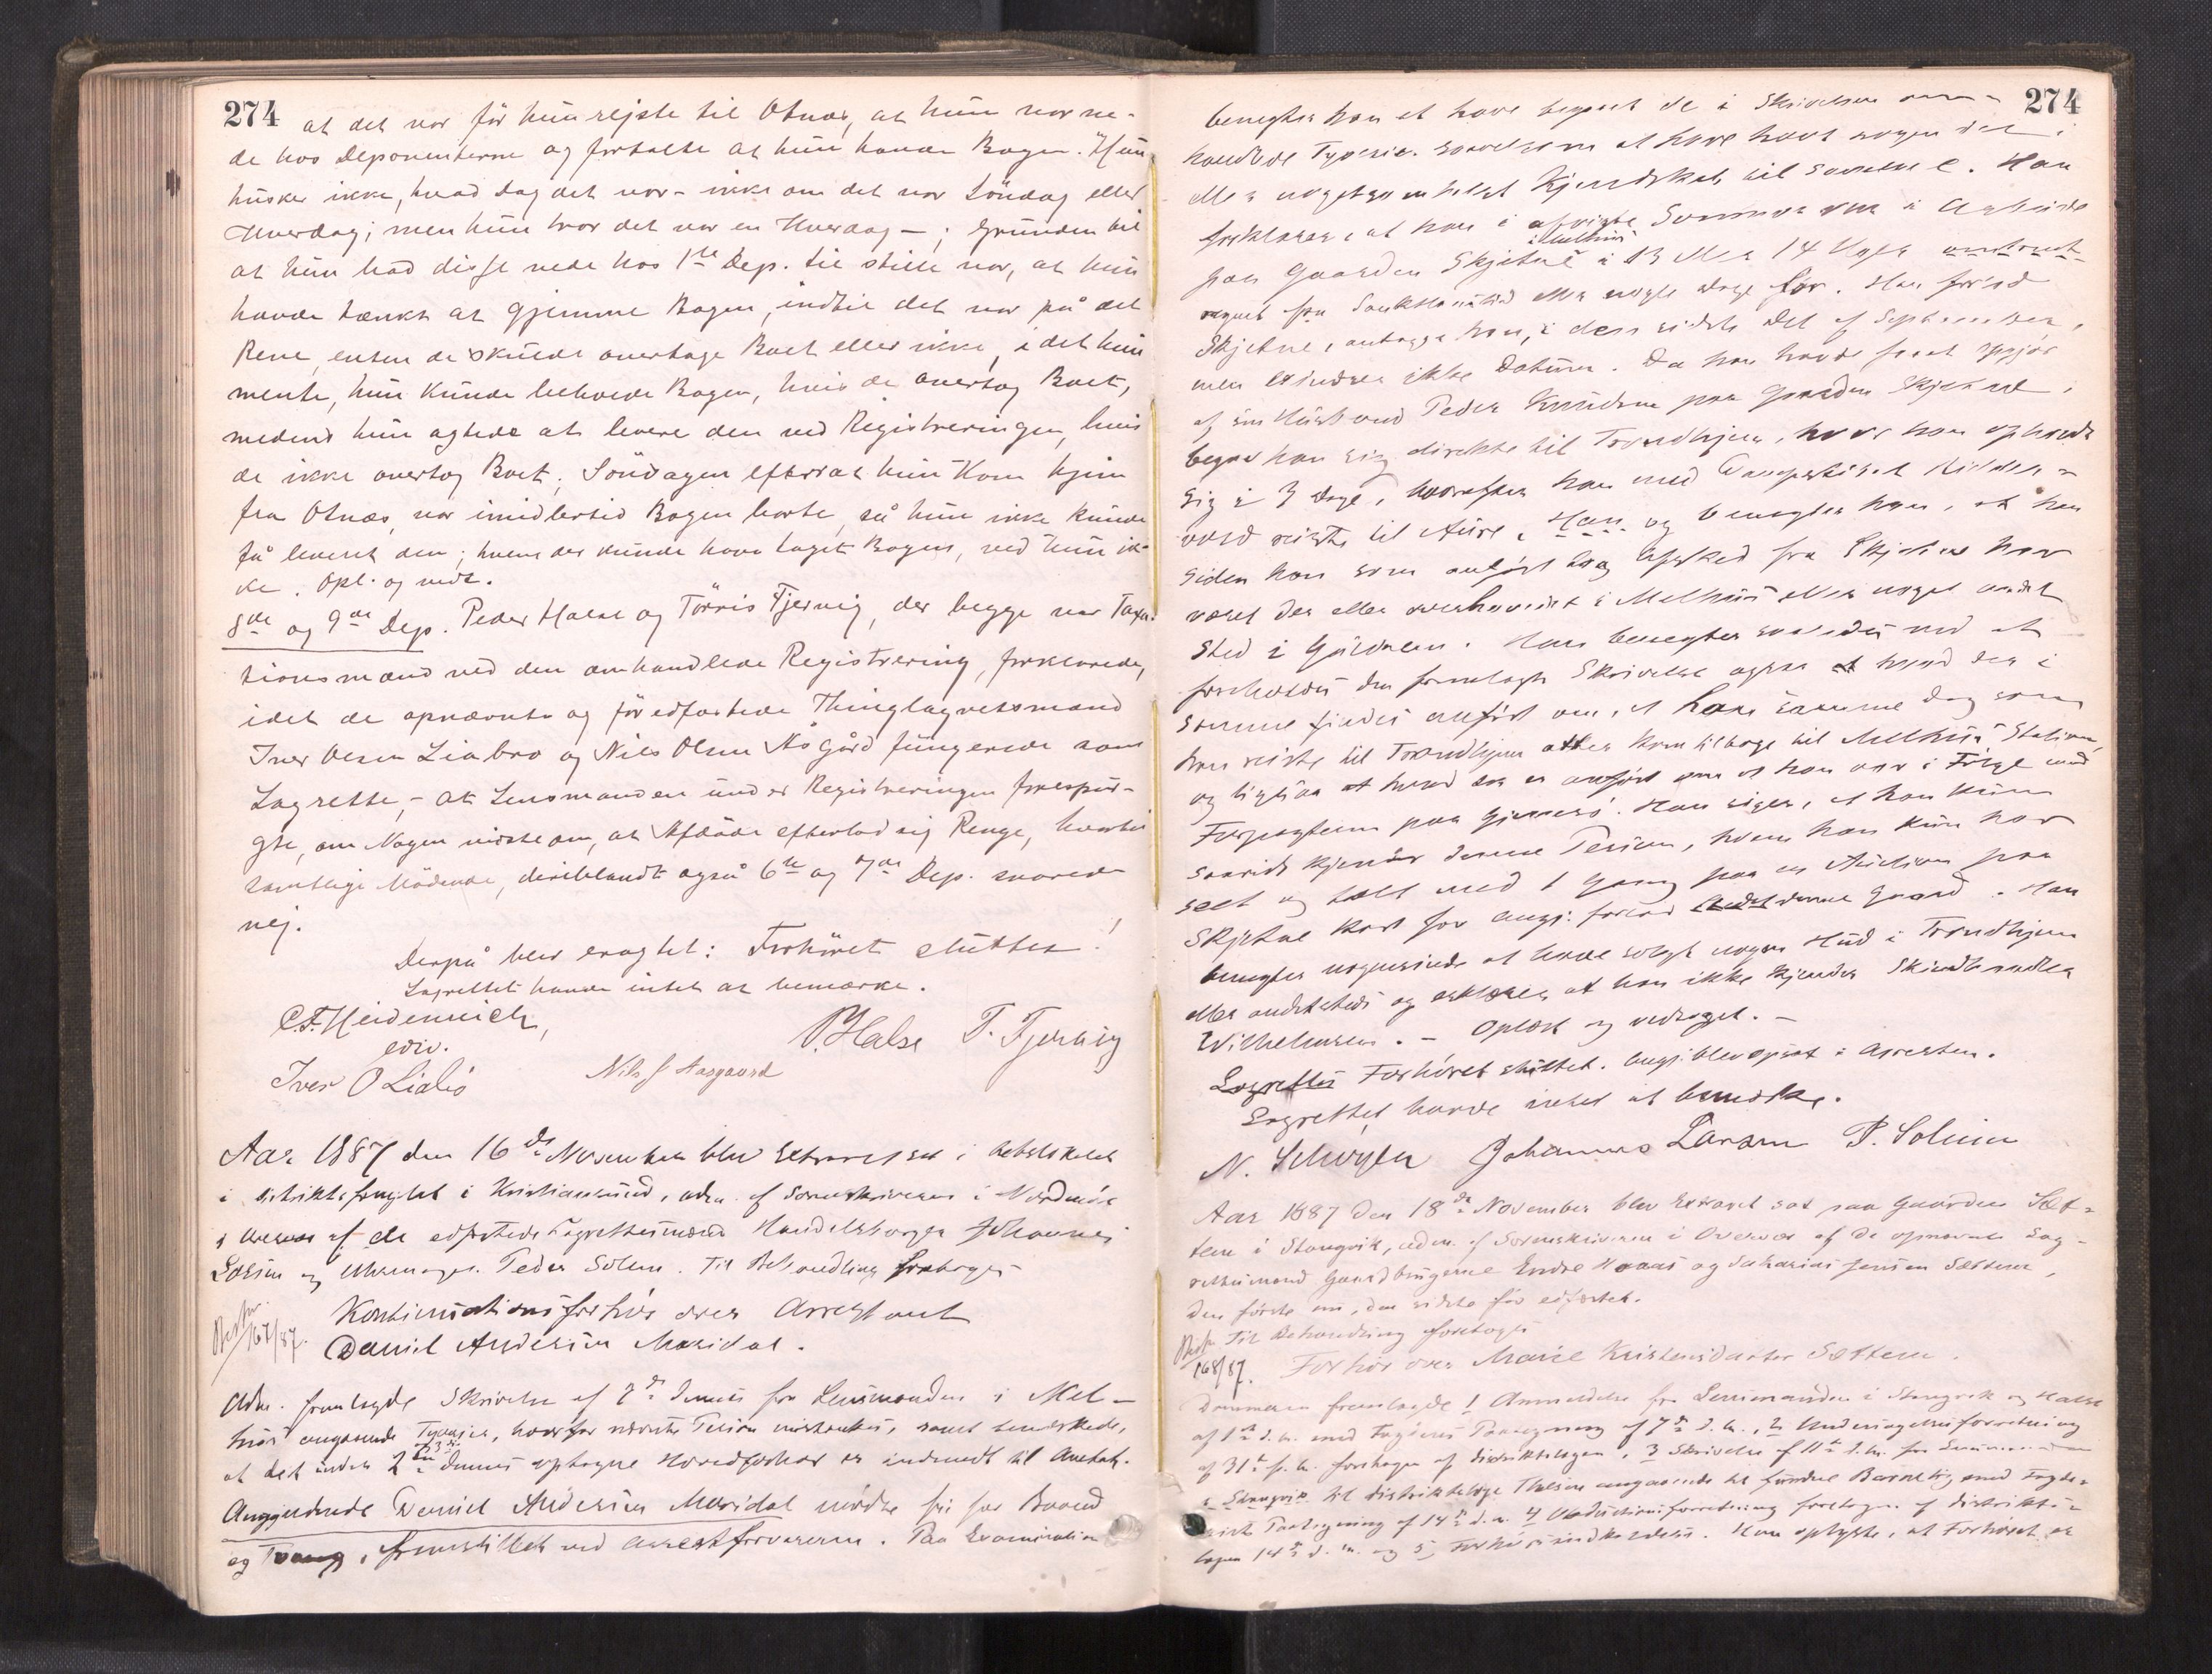 274
at det var før hun rejste til Otnæs, at hun var ne-
de hos Deponenterne og fortalte at hun havde Bogen. Hun
husker ikke, hvad Dag det var - ikke om det var Söndag eller
Hverdag; men hun tror det var en Hverdag -; Grunden til
at hun bad disse nede hos 1ste Dep. tie stille var, at hun
havde tænkt at gjemme Bogen, indtil det var på det
Rene, enten de skulde overtage Boet eller ikke, idet hun
mente, hun kunde behøve Bogen, hvis de overtog Boet,
medens hun agtede at levere den ved Registreringen, hvis
de ikke overtog Boet. Söndagen efterat hun kom hjem
fra Otnæs, var imidlertid Bogen borte, så hun ikke kunde
få leveret den; hvem der kunde have taget Bogen, ved hun ik-
ke. Opl. og vedt.
8de og 9de Dep. Peder Halse og Törris Fjervig, der begge var Taxa-
tionsmænd ved den omhandlede Registrering, forklarede,
idet de opnævnte og för edfæstede Thinglagrettesmænd
Iver Olsen Liabro og Nils Olsen Åsgård fungerede som
Lagrette, - at Lensmanden under Registreringen forespur-
gte, om Nogen vidste om, at Afdöde efterlod sig Penge, hvortil
samtlige Mödende, deriblandt også 6te og 7de Dep. svarede
nej.
Derpå blev eragtet: Forhöret sluttes!
Lagrettet havde intet at bemærke.
C.F. Heidenreich,
edv.
P. Halse T. Fjervig
Iver O Liabö
Nils J Aasgaard
Aar 1887 den 16de November blev Extraret sat i
i Distriktsfængslet i Kristiansund, adm. af Sorenskriveren i Nordmöre
i Overvær af de edfæstede Lagrettesmænd Handelsborger Johannes
Larsen og Uhrmager Peder Solem. Til Behandling foretoges
167/87.
Kontinuationsforhör over Arrestant
Daniel Andersen Maridal.
Adm. fremlagde Skrivelse af 7de dennes fra Lensmanden i Mel-
hus angaaende Tyverier, hvorfor nævnte Person mistænkes, samt bemærkede,
at det under 2den dennes optagne Hovedforhør er indsendt til Amtet.
Angjældende Daniel Andersen Maridal mödte fri for Baand
og Tvang, fremstillet ved Arrestforvareren. Paa Examination
274
benegter han at have begaaet de i Skrivelsen om-
handlede Tyverier saavelsom at have havt nogen Del i
eller nogetsomhelst Kjendskab til samme. Han
forklarer, at han i afvigte Sommer var i Arbeide
i Melhus
paa Gaarden Skjetne i 13 eller 14 Uger omtrent
regnet fra Sankthanstid eller nogle Dage før. Han forlod
Skjetne, antager han, i den sidste Del af September,
men erindrer ikke Datum. Da han havde faaet Opgjör
af sin Husbond Peder Knudsen paa Gaarden Skjetne,
begav han sig direkte til Trondhjem, hvor han opholdt
sig i 3 Dage, hvorefter han med Dampskibet
reiste til Aure. Han og benegter han, at han
siden han som anført tog Afsked fra Skjetne har
været der eller overhovedet i Melhus eller noget andet
Sted i Guldalen. Han benegter saaledes ved at
foreholdes den fremlagte Skrivelse ogsaa hvad der i
samme findes anført om, at han samme Dag som
han reiste til Trondhjem atter kom tilbage til Melhus Station,
og ligesaa at hvad der er anført om at han var i Følge med
Forpagteren paa Gimse. Han siger, at han kun
saavidt kjender denne Person, hvem han kun har
seet og talt med 1 Gang paa en Auktion paa
Skjetne kort før angj. forlod denne Gaard. Han
benegter nogensinde at have solgt nogen Hud i Trondhjem
eller andetsteds og erklærer at han ikke kjender Skindhandler
Wilhelmsen. - Oplæst og vedtaget. -
Lagrettes Forhöret sluttet. Angj. blev indsat i Arresten.
Lagrettet havde intet at bemærke.
Johannes Larsen P. Solem
Aar 1887 den 18de November blev Extraret sat paa Gaarden Sæt-
tem i Stangvik, adm. af Sorenskriveren i Overvær af de opnævnte Lag-
rettesmænd Gaardbrugerne Endre Honnes og Sakarias Jensen Sættem,
den første nu, den sidste för edfæstet.
Til Behandling foretoges
168/87.
Forhör over Marie Kristensdatter Sættem.
Dommeren fremlagde 1 Anmeldelse fra Lensmanden i Stangvik og Halse
af 1ste d.m. med Fogdens Paategning af 7de d.m., 2 Undersøgelsesforretning
af 31te f.m. foretagen af Distriktslægen, 3 Skrivelse af 11te d.m. fra Lensmanden
i Stangvik til Distriktslæge Thesen angaaende det fundne Barnelig med Fogde-
riets Paategning af 14de d.m. 4 Obduktionsforretning foretagen af Distrikts-
lægen 14de d.m. og 5 Forhørsindkaldelse. Han oplyste, at Forhøret er